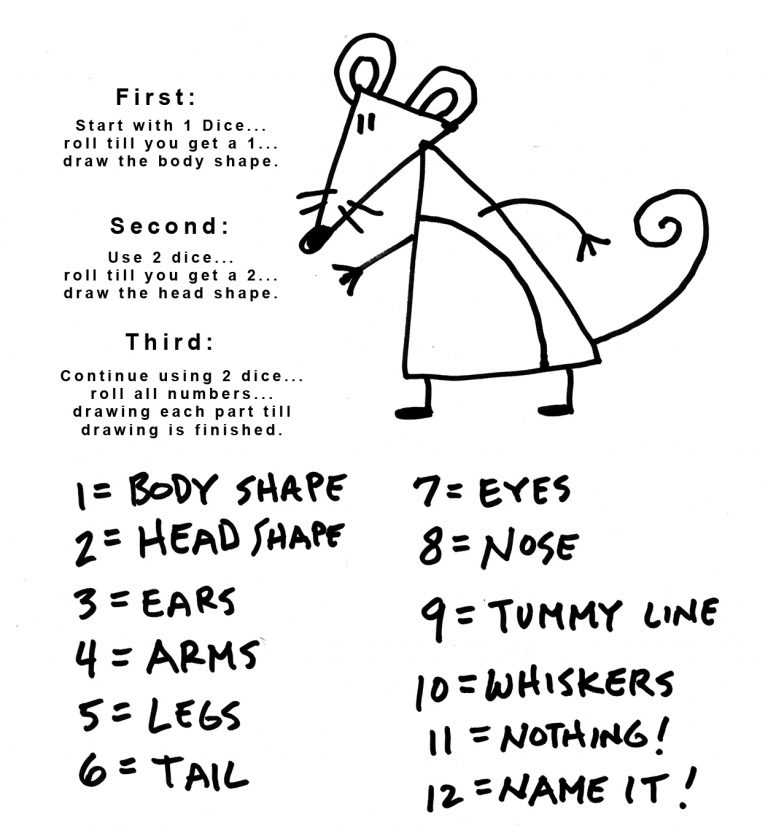 First:
Start with 1 Dice...
roll till you get a 1...
draw the body shape.
Second:
Use 2 dice...
roll till you get a 2...
draw the head shape.
Third:
Continue using 2 dice...
roll all numbers...
drawing each part till
drawing is finished.
1 = BODY SHAPE
2 = HEAD SHAPE
3 = EARS
4 = ARMS
5 = LEGS
6 = TAIL
7 = EYES
8 = NOSE
9 = TUMMY LINE
10 = WHISKERS
11 = NOTHING!
12 = NAME IT!